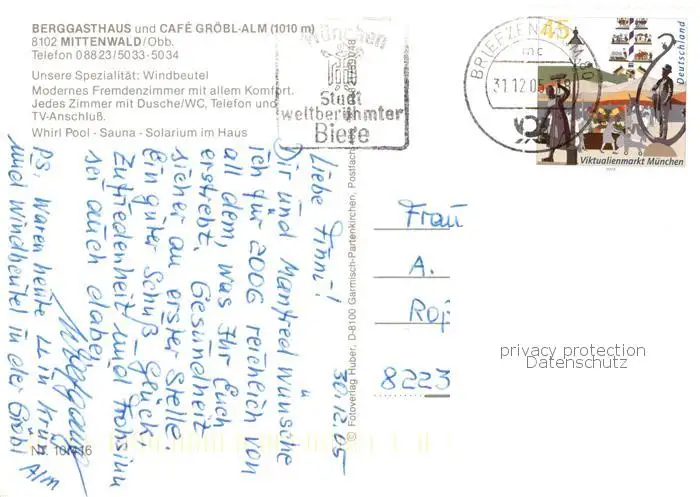 BERGGASTHAUS und CAFÉ GRÖBL-ALM (1010 m)
8102 MITTENWALD/Obb.
Telefon 08823/5033-5034
Unsere Spezialität: Windbeutel
Modernes Fremdenzimmer mit allem Komfort.
Jedes Zimmer mit Dusche/WC, Telefon und
TV-Anschluß.
Whirl Pool - Sauna - Solarium im Haus
München
Stadt
weltberühmter
Biere
BRIEFZENTRUM 80
mc
31.12.05
45
Deutschland
Viktualienmarkt München
30.12.05
Liebe Finni!
Dir und Manfred wünsche
ich für 2006 reichlich von
all dem, was Ihr Euch
erstrebt. Gesundheit
sicher an erster Stelle.
Ein guter Schuß Glück,
Zufriedenheit und Frohsinn
sei auch dabei,
Wolfgang
PS. Waren heute in Krün
und Windbeutel in der Gröbl Alm
© Fotoverlag Huber, D-8100 Garmisch-Partenkirchen, Postfach
Frau
A.
Rop
8223
Nr. 10416
privacy protection
Datenschutz